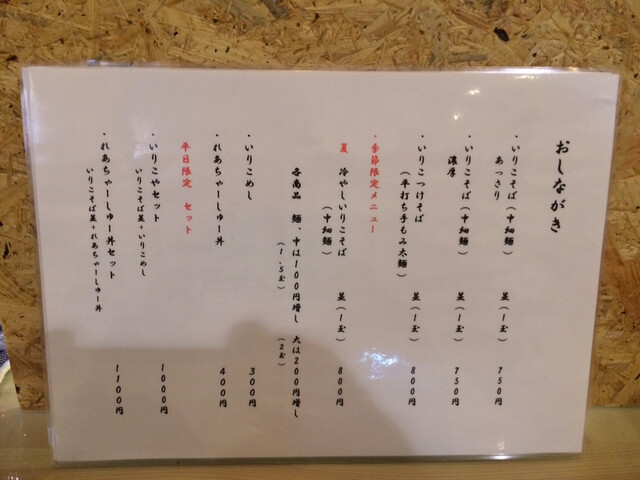 おしながき
・いりこそば(中細麺) 並(1玉) 750円
あっさり
・いりこそば(中細麺) 並(1玉) 750円
濃厚
・いりこつけそば 並(1玉) 800円
(平打ち手もみ太麺)
・季節限定メニュー
夏 冷やしいりこそば 並(1玉) 800円
(中細麺)
各商品 麺、中は100円増し 大は200円増し
(1.5玉) (2玉)
・いりこめし 300円
・れあちゃーしゅー丼 400円
平日限定 セット
・いりこやセット 1000円
いりこそば並+いりこめし
・れあちゃーしゅー丼セット 1100円
いりこそば並+れあちゃーしゅー丼